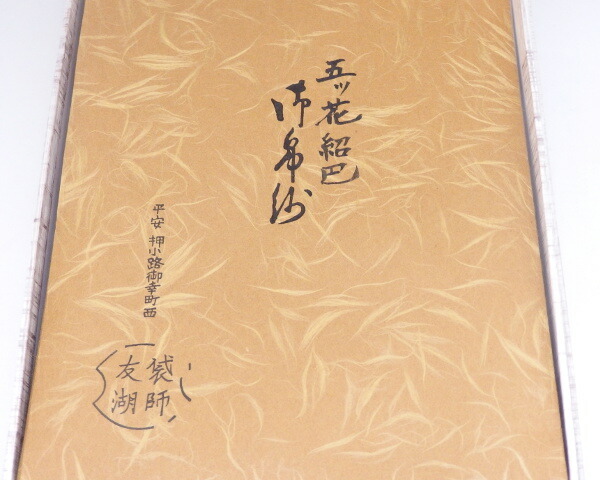 五ッ花紹巴
御帛紗
平安 押小路御幸町西
袋師
友湖